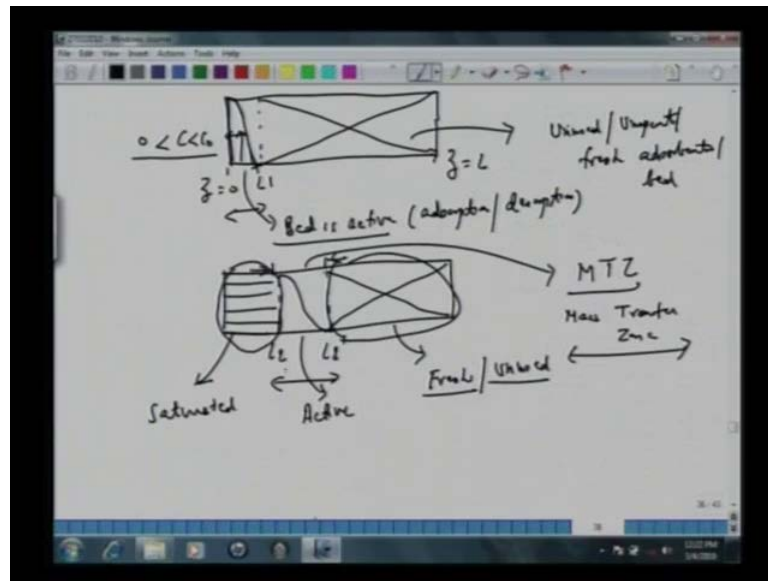 File Edit View Insert Actions Tools Help
0 < C < C₀
z=0
L1
z=L
Unused / Unspent /
fresh adsorbents /
bed
Bed is active (adsorption / desorption)
MTZ
Mass Transfer
Zone
L2
L2
Fresh / Unused
Saturated
Active